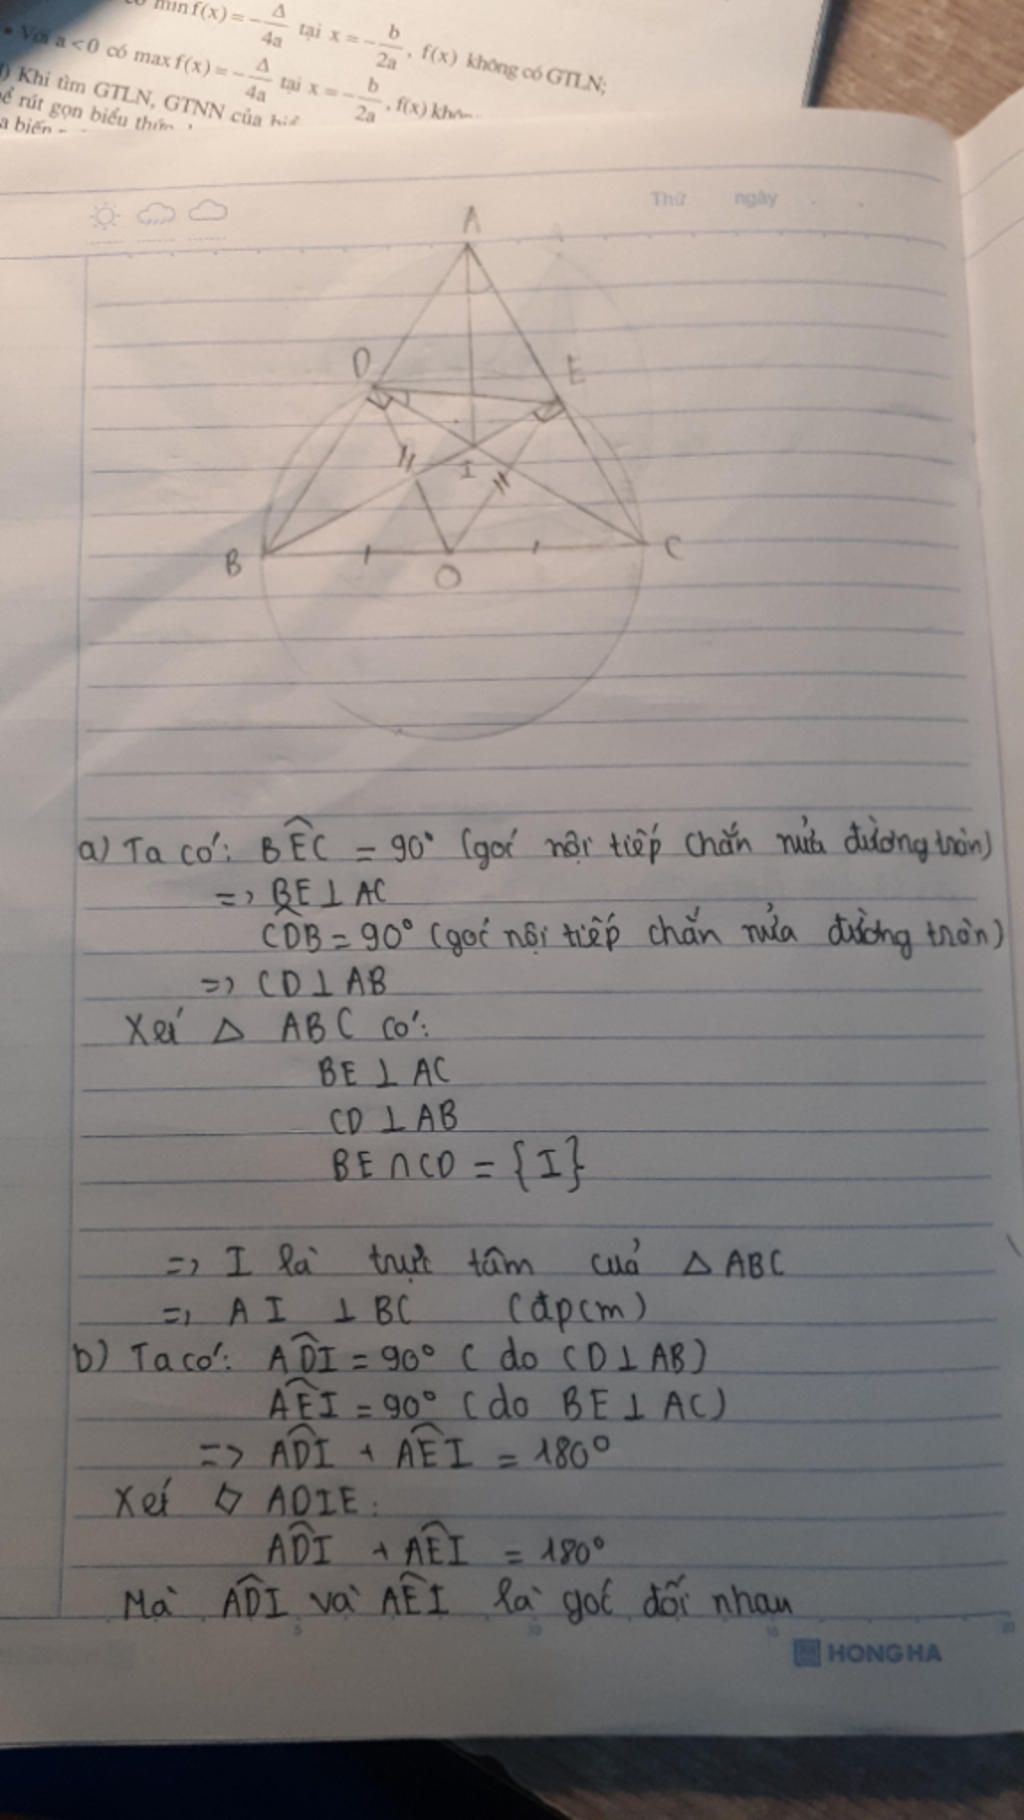 min f(x) = -Δ/4a tại x = -b/2a, f(x) không có GTLN;
• Với a < 0 có max f(x) = -Δ/4a tại x = -b/2a, f(x)
Khi tìm GTLN, GTNN của
rút gọn biểu thức
a biến
Thứ ngày
A
D
E
I
B
C
O
a) Ta có: BÊC = 90° (góc nội tiếp chắn nửa đường tròn)
=> BE ⊥ AC
CDB = 90° (góc nội tiếp chắn nửa đường tròn)
=> CD ⊥ AB
Xét Δ ABC có:
BE ⊥ AC
CD ⊥ AB
BE ∩ CD = {I}
=> I là trực tâm của Δ ABC
=> AI ⊥ BC (đpcm)
b) Ta có: ADI = 90° (do CD ⊥ AB)
AÊI = 90° (do BE ⊥ AC)
=> ADI + AÊI = 180°
Xét ◇ ADIE:
ADI + AÊI = 180°
Mà ADI và AÊI là góc đối nhau
5 10 15 20
HONG HA